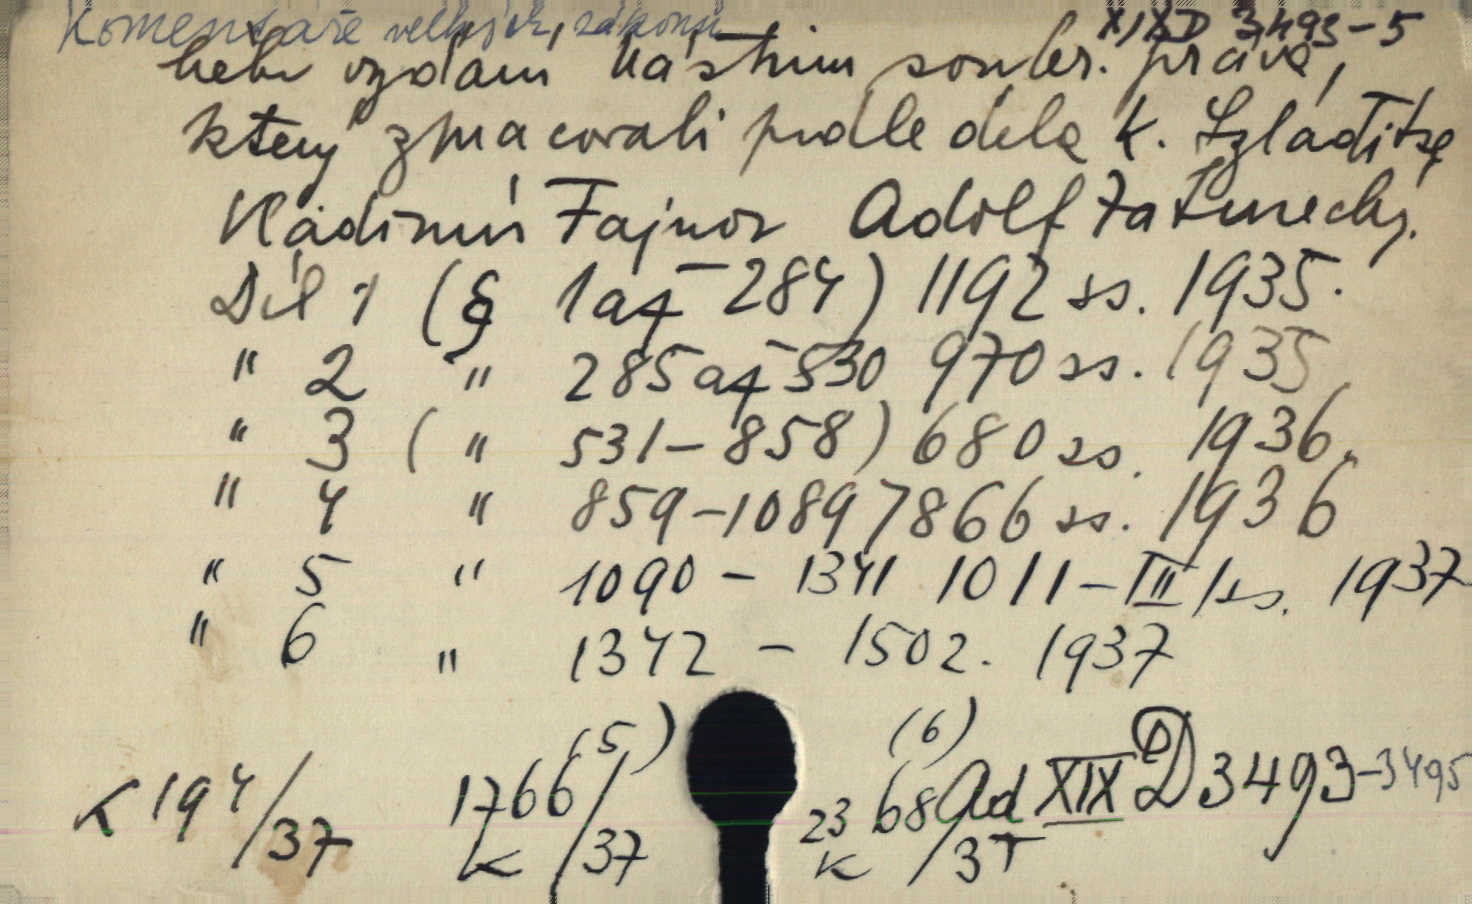 Komentáře velkých zákonů XIXD 3493-5
souker. práva,
který zpracovali podle dela K. Szladitse
Vladimír Fajnor Adolf Zaturecky.
Díl 1 (§ 1 až 284) 1192 ss. 1935.
" 2 " 285 až 530 970 ss. 1935
" 3 ( " 531-858) 680 ss. 1936.
" 4 " 859-1089 866 ss. 1936
" 5 " 1090 - 1341 1011-III/ss. 1937
" 6 " 1342 - 1502. 1937
(5) (6)
K 194/37 1766/37 K 2368/37 K Ad XIX D 3493-3495